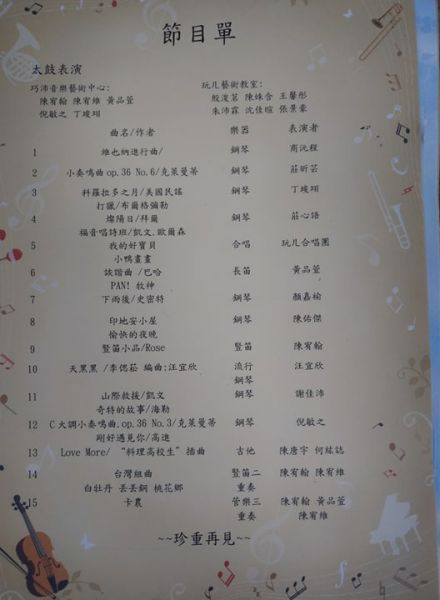 節目單
太鼓表演
巧沛音樂藝術中心: 玩凡藝術教室:
陳宥翰 陳宥維 黃品萱 殷浚茗 陳姝含 王馨彤
倪敏之 丁竣翊 朱沛霖 沈佳暄 張景豪
曲名/作者 樂器 表演者
1 維也納進行曲/ 鋼琴 商沅程
2 小奏鳴曲 op.36 No.6/克萊曼蒂 鋼琴 莊昕芸
3 科羅拉多之月/美國民謠 鋼琴 丁竣翊
打獵/布爾格彌勒
4 燦陽日/拜爾 鋼琴 莊心語
福音唱詩班/凱文.歐爾森
5 我的好寶貝 合唱 玩凡合唱團
小鴨畫畫
6 詼諧曲 /巴哈 長笛 黃品萱
PAN! 牧神
7 下雨後/史密特 鋼琴 顏嘉榆
8 印地安小屋 鋼琴 陳佑傑
愉快的夜晚
9 豎笛小品/Rose 豎笛 陳宥翰
10 天黑黑 /李偲菘 編曲:汪宜欣 流行 汪宜欣
鋼琴
11 山際救援/凱文 鋼琴 謝佳沛
奇特的故事/海勒
12 C大調小奏鳴曲.op.36 No.3/克萊曼蒂 鋼琴 倪敏之
剛好遇見你/高進
13 Love More/ “料理高校生”插曲 吉他 陳唐宇 何紘誌
14 台灣組曲 豎笛二 陳宥翰 陳宥維
白牡丹 丟丟銅 桃花鄉 重奏
15 卡農 管樂三 陳宥翰 黃品萱
重奏 陳宥維
~~珍重再見~~